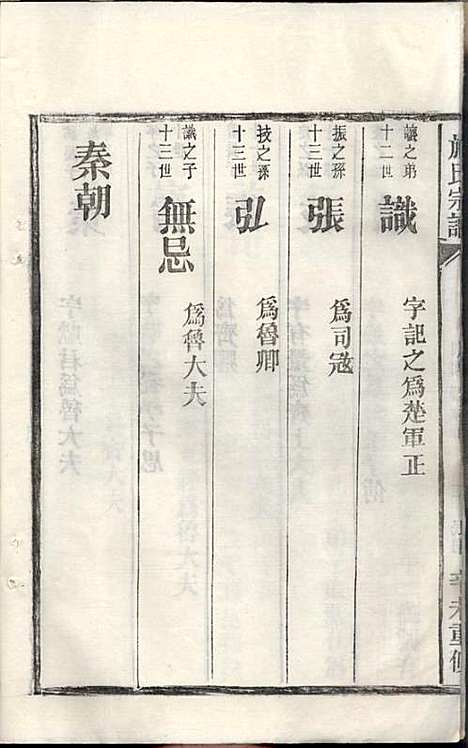 氏宗譜
重修
讓之弟
十二世
識
字記之爲楚軍正
振之孫
十三世
張
爲司宼
技之孫
十三世
弘
爲魯卿
識之子
十三世
無忌
爲魯大夫
秦朝